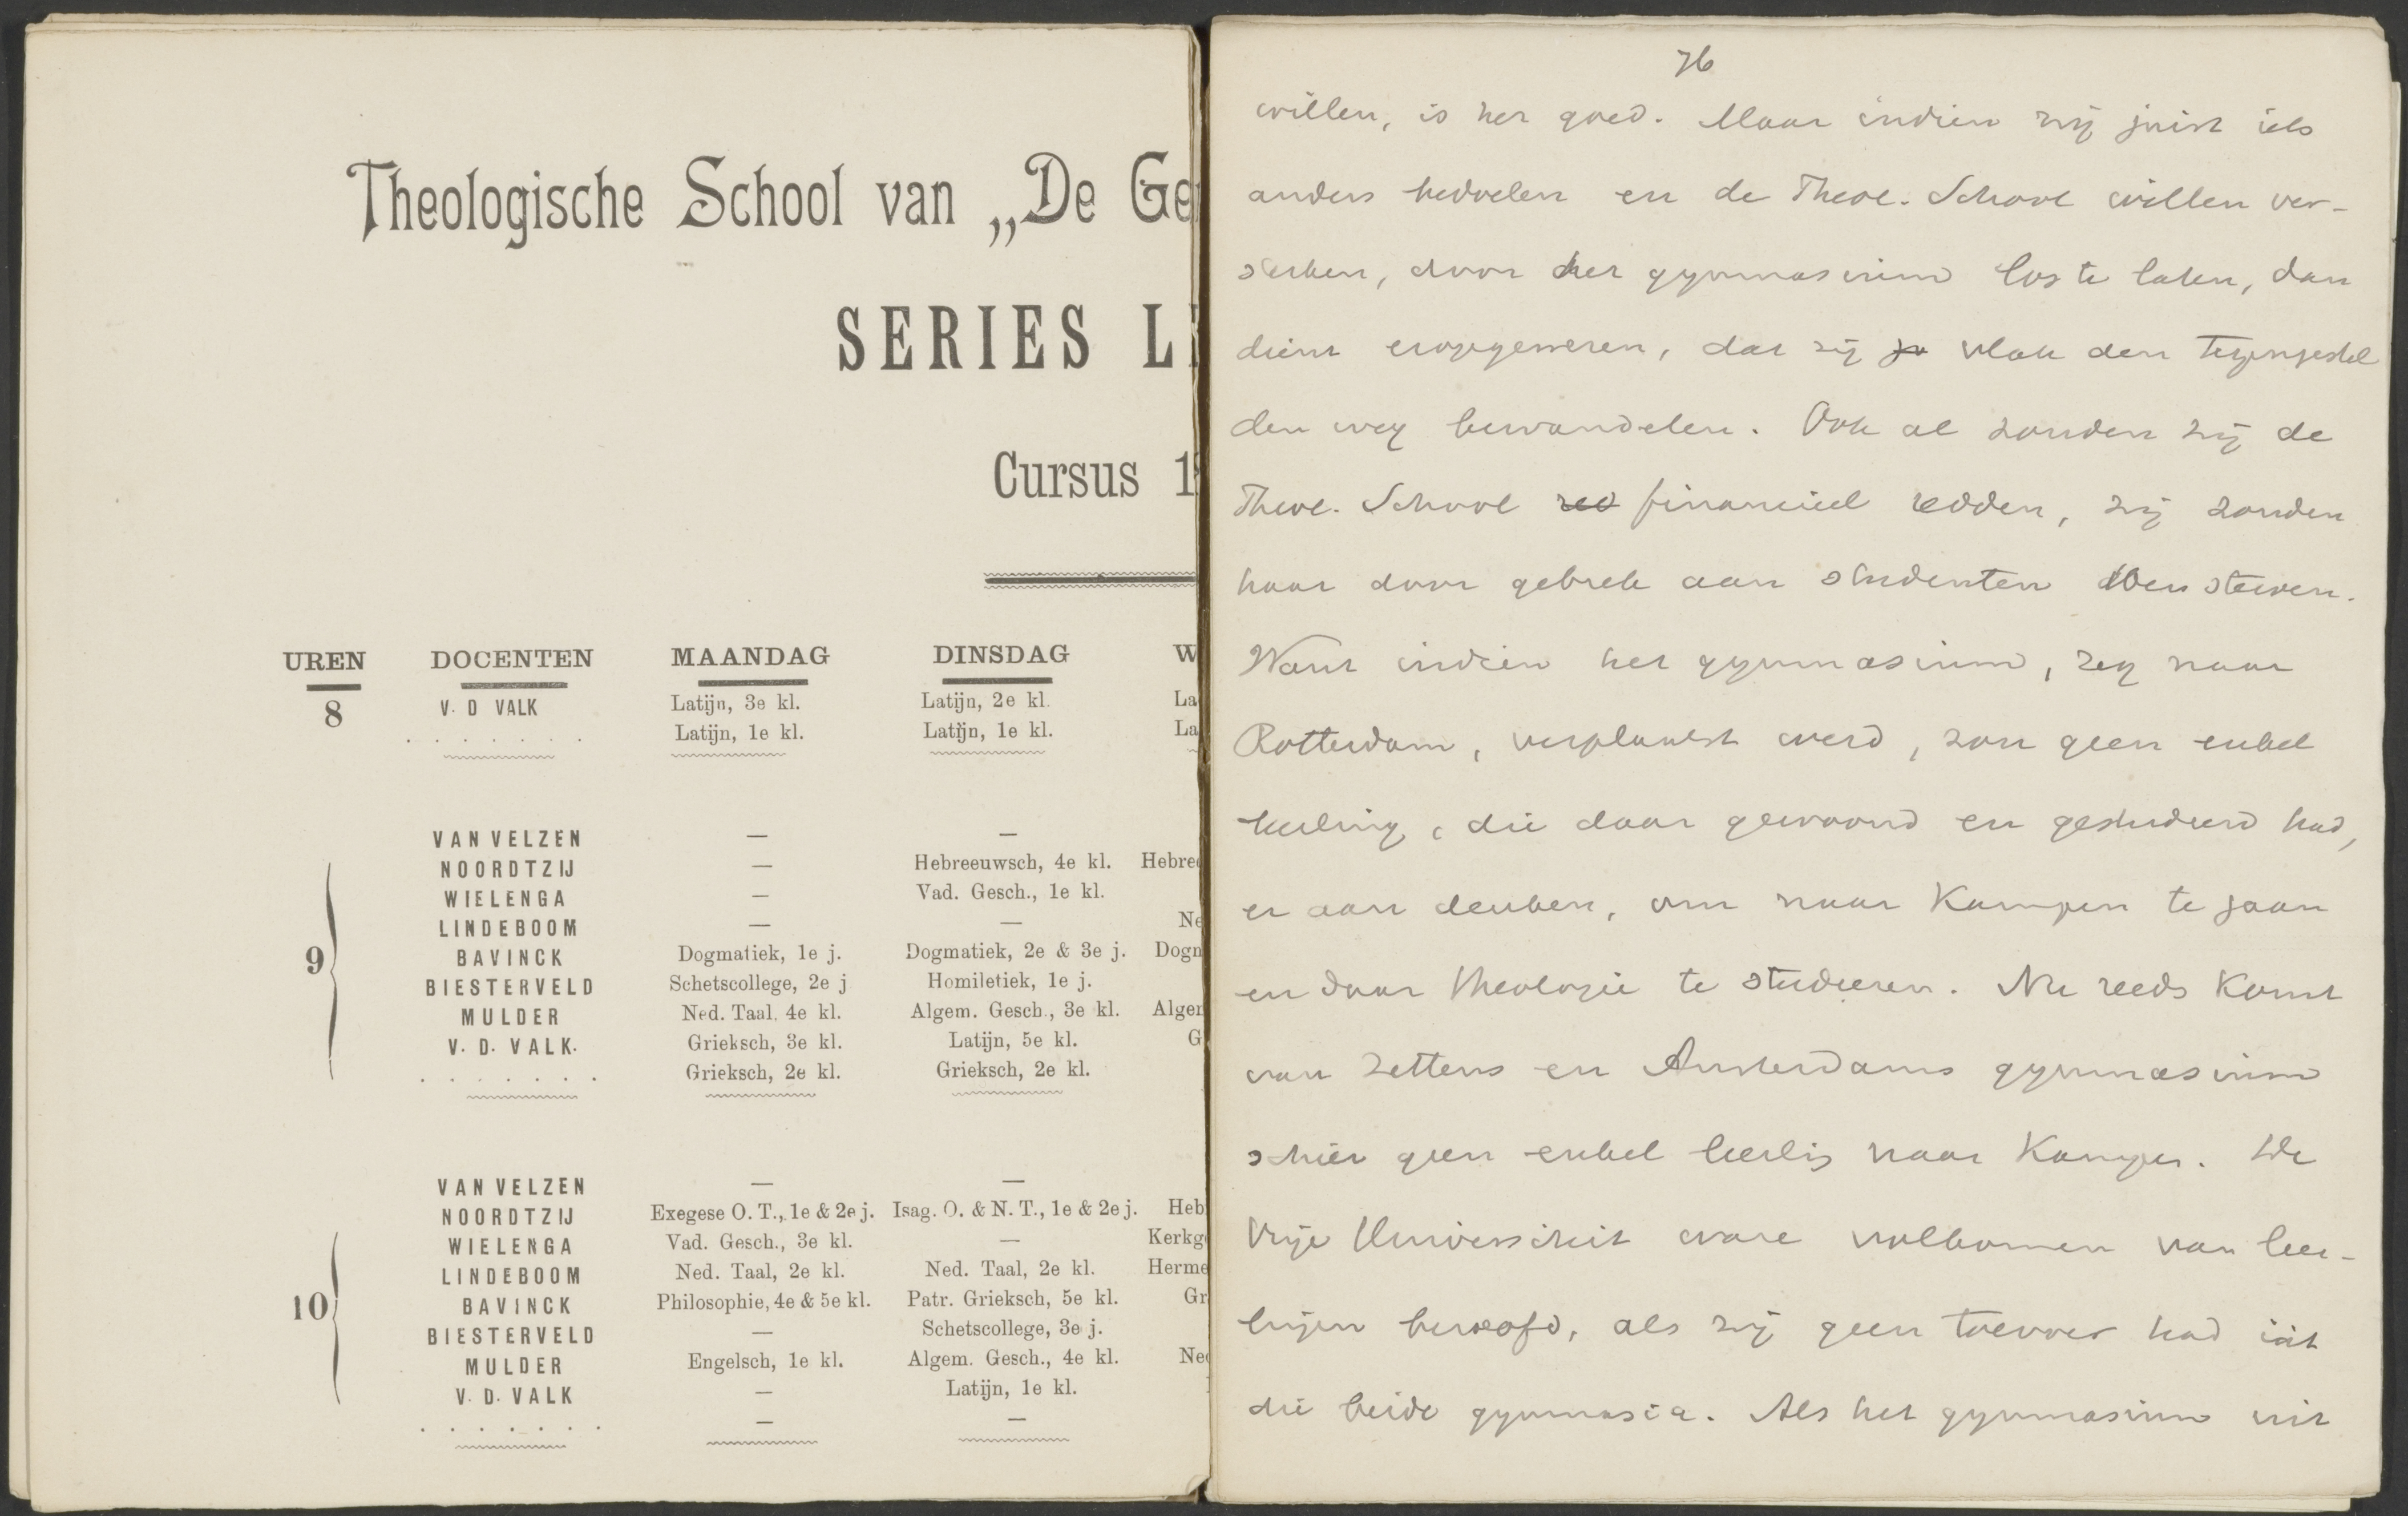 Theologische School van „De Ge
SERIES L
Cursus 1
UREN DOCENTEN MAANDAG DINSDAG W
8 V. D VALK Latijn, 3e kl. Latijn, 2e kl. La
. . . . . . . Latijn, 1e kl. Latijn, 1e kl. La
VAN VELZEN — —
NOORDTZIJ — Hebreeuwsch, 4e kl. Hebre
WIELENGA — Vad. Gesch., 1e kl.
LINDEBOOM — — Ne
9 BAVINCK Dogmatiek, 1e j. Dogmatiek, 2e & 3e j. Dogn
BIESTERVELD Schetscollege, 2e j Homiletiek, 1e j.
MULDER Ned. Taal, 4e kl. Algem. Gesch., 3e kl. Alger
V. D. VALK. Grieksch, 3e kl. Latijn, 5e kl. G
. . . . . . . Grieksch, 2e kl. Grieksch, 2e kl.
VAN VELZEN — —
NOORDTZIJ Exegese O. T., 1e & 2e j. Isag. O. & N. T., 1e & 2e j. Heb
WIELENGA Vad. Gesch., 3e kl. — Kerkg
LINDEBOOM Ned. Taal, 2e kl. Ned. Taal, 2e kl. Herme
10 BAVINCK Philosophie, 4e & 5e kl. Patr. Grieksch, 5e kl. Gr
BIESTERVELD — Schetscollege, 3e j.
MULDER Engelsch, 1e kl. Algem. Gesch., 4e kl. Ne
V. D. VALK — Latijn, 1e kl.
. . . . . . . — —
76
willen, is het goed. Maar indien zij juist iets
anders bedoelen en de Theol. School willen ver-
sterken, door het gymnasium los te laten, dan
dient erop gewezen, dat zij vlak den tegengestel
den weg bewandelen. Ook al zouden zij de
Theol. School red financieel redden, zij zouden
haar door gebrek aan studenten doen sterven.
Want indien het gymnasium, zeg naar
Rotterdam, verplaatst werd, zou geen enkel
leerling, die daar gewoond en gestudeerd had,
er aan denken, om naar Kampen te gaan
en daar theologie te studeeren. Nu reeds komt
van Zettens en Amsterdams gymnasium
schier geen enkel leerlig naar Kampen. De
Vrije Universiteit ware volkomen van leer-
lingen beroofd, als zij geen toevoer had uit
die beide gymnasia. Als het gymnasium uit